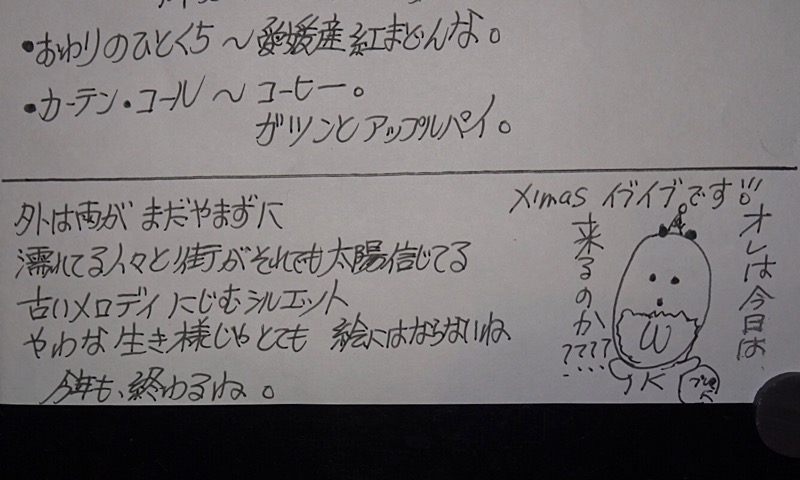 •おわりのひとくち～愛媛産紅まどんな。
•カーテン・コール～コーヒー。
ガツンとアップルパイ。
外は雨がまだやまずに
濡れてる人々と街がそれでも太陽信じてる
古いメロディにじむシルエット
やわな生き様じゃとても 絵にはならないね
今年も、終わるね。
Ximas イブイブです!!
オレは今日は
来るのか????
W
YK